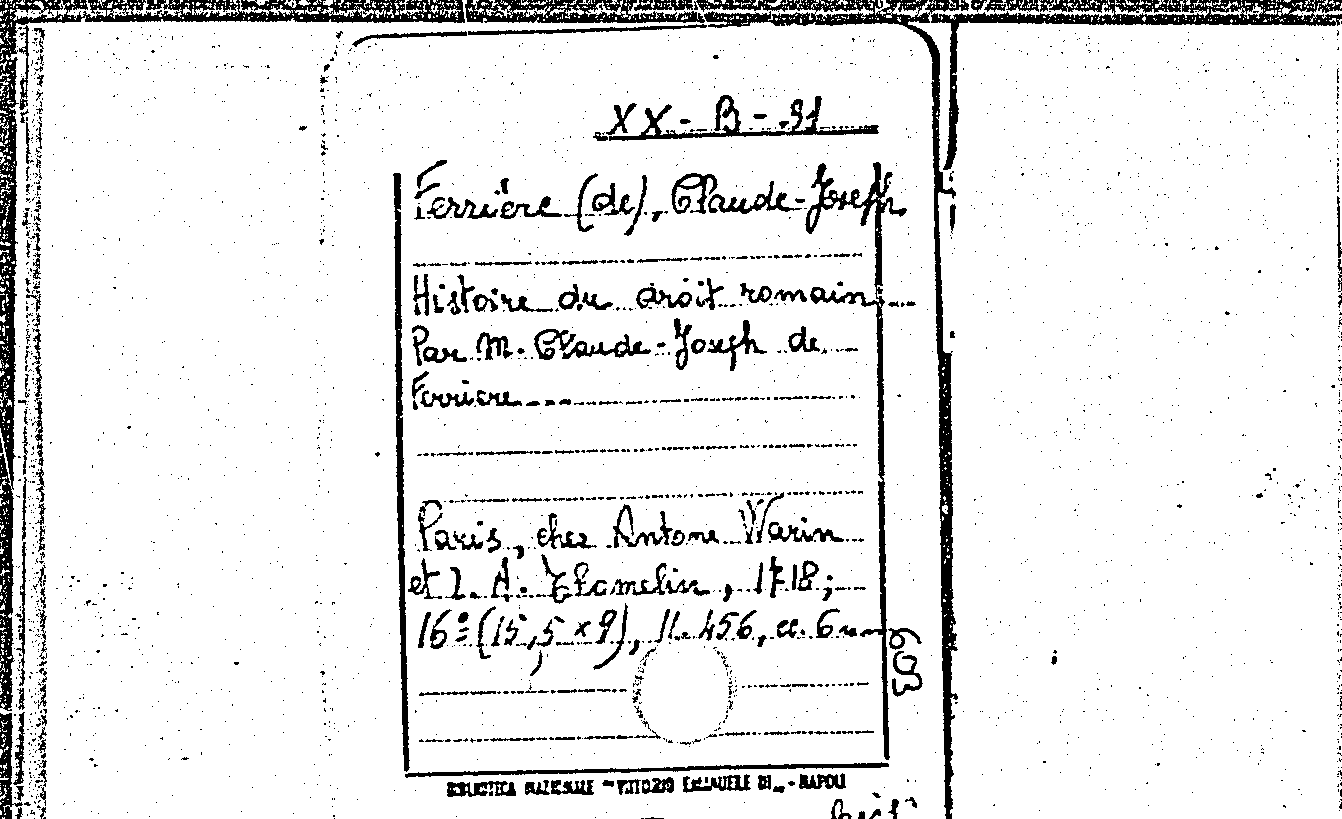 XX - B - 91
Ferrière (de), Claude-Joseph.
Histoire du droit romain....
Par M. Claude-Joseph de
Ferriere....
Paris, chez Antone Warin
et I. A. Thomelin, 1718;
16º (15,5 × 9), 11. 456, cc. 6 nn
603
BIBLIOTECA NAZIONALE "VITTORIO EMANUELE III" - NAPOLI